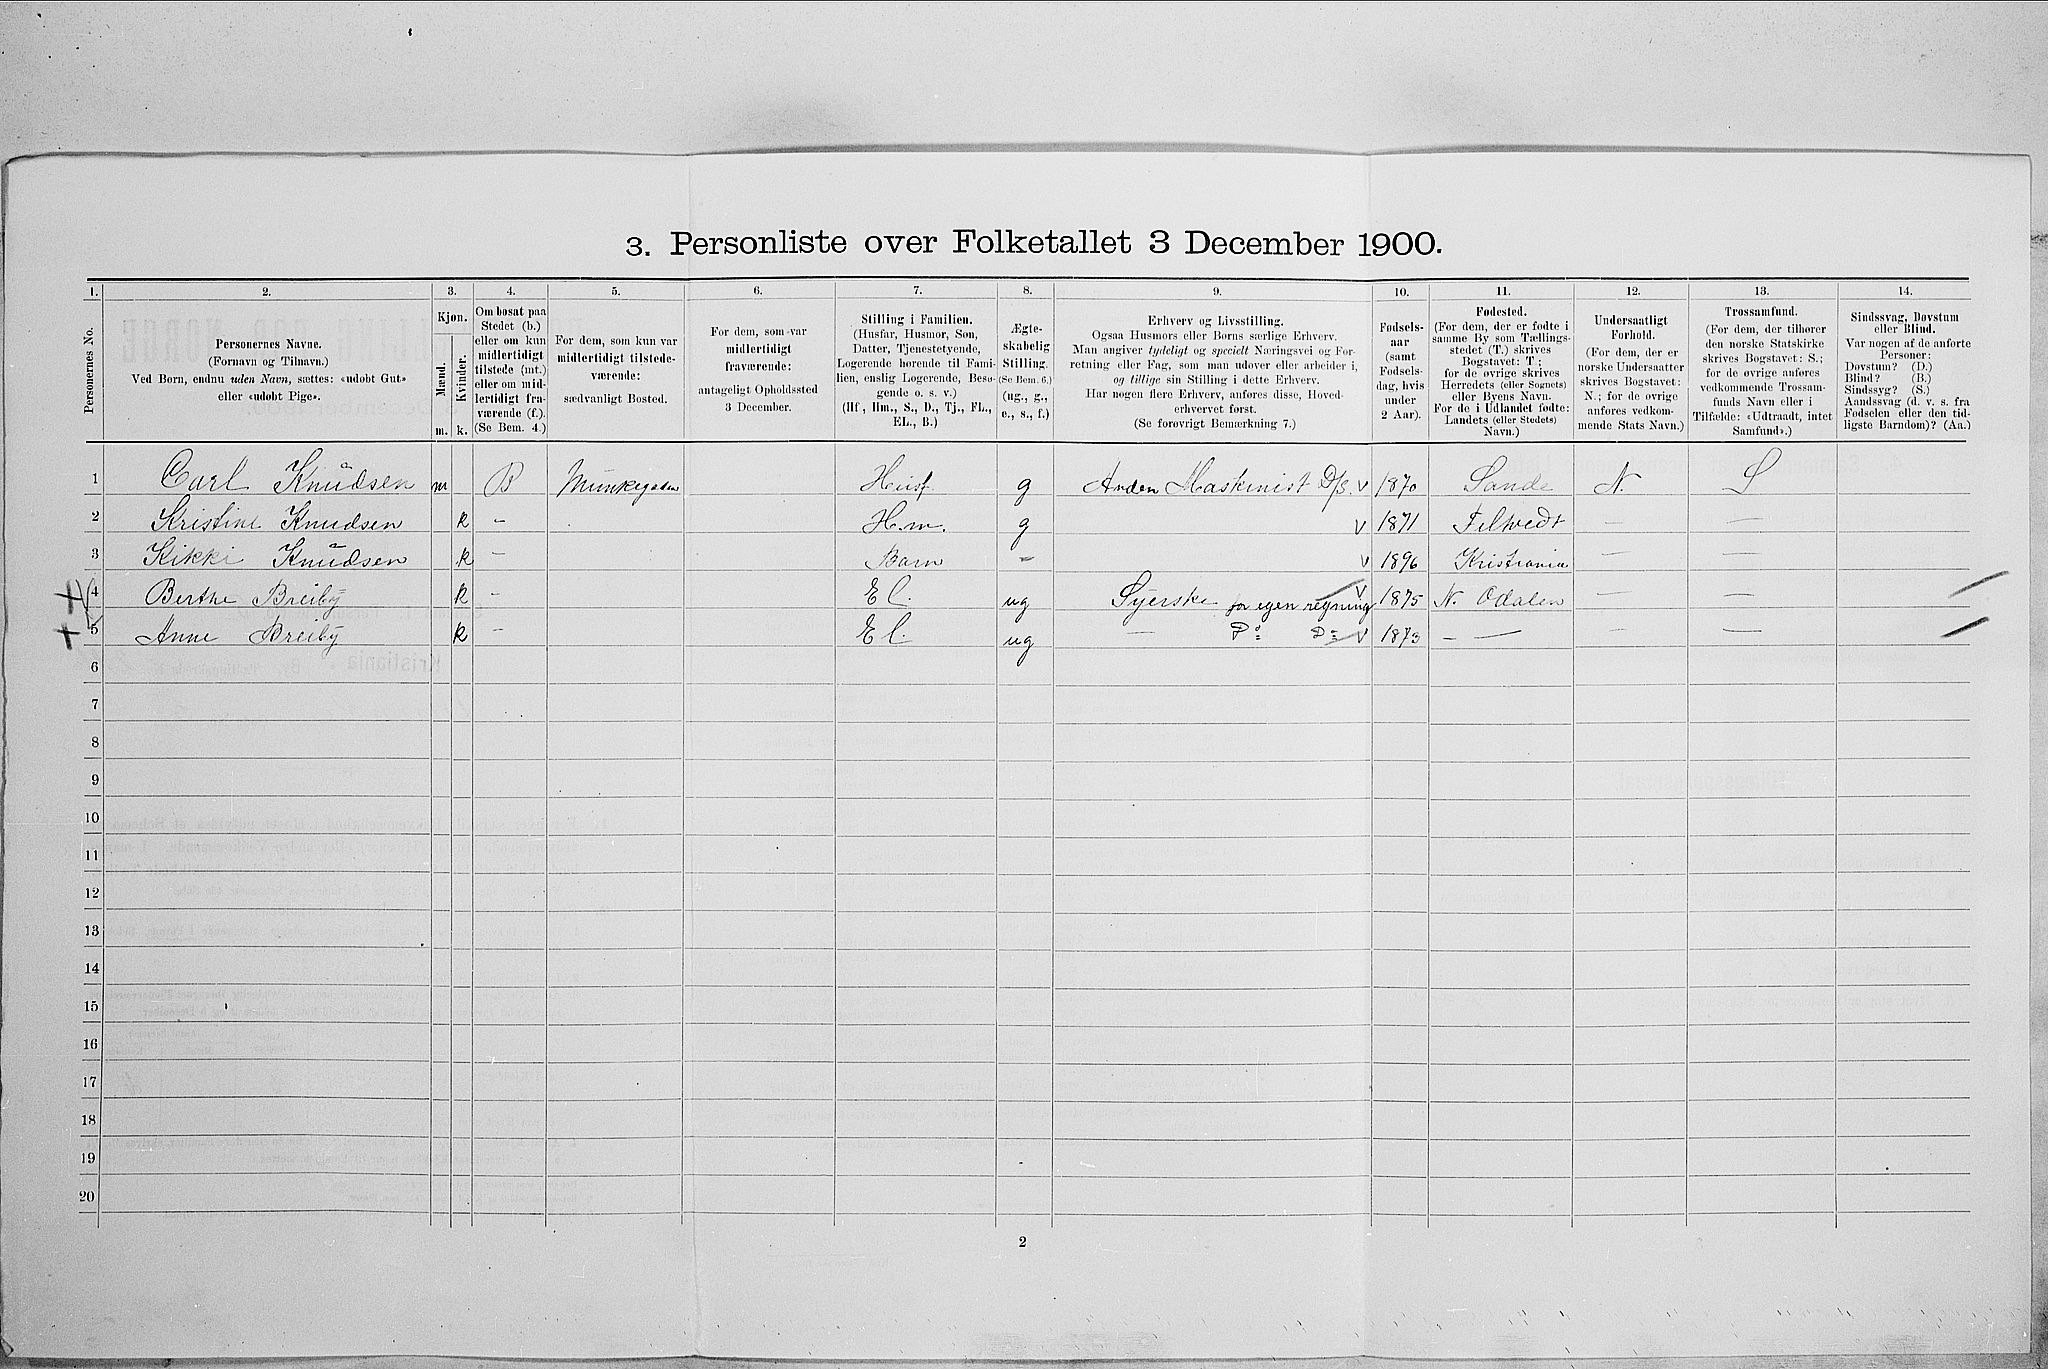 3. Personliste over Folketallet 3 December 1900.
1. 2. 3. 4. 5. 6. 7. 8. 9. 10. 11. 12. 13. 14.
Personernes No.
Personernes Navne.
(Fornavn og Tilnavn.)
Ved Børn, endnu uden Navn, sættes: «udøbt Gut»
eller «udøbt Pige».
Kjøn.
Mænd.
Kvinder.
m. k.
Om bosat paa
Stedet (b.)
eller om kun
midlertidigt
tilstede (mt.)
eller om mid-
lertidigt fra-
værende (f.).
(Se Bem. 4.)
For dem, som kun var
midlertidigt tilstede-
værende:
sædvanligt Bosted.
For dem, som var
midlertidigt
fraværende:
antageligt Opholdssted
3 December.
Stilling i Familien.
(Husfar, Husmor, Søn,
Datter, Tjenestetyende,
Logerende hørende til Fami-
lien, enslig Logerende, Besø-
gende o. s. v.)
(Hf, Hm., S., D., Tj., FL.,
EL., B.)
Ægte-
skabelig
Stilling.
(Se Bem. 6.)
(ug., g.,
e., s., f.)
Erhverv og Livsstilling.
Ogsaa Husmors eller Børns særlige Erhverv.
Man angiver tydeligt og specielt Næringsvei og For-
retning eller Fag, som man udøver eller arbeider i,
og tillige sin Stilling i dette Erhverv.
Har nogen flere Erhverv, anføres disse, Hoved-
erhvervet først.
(Se forøvrigt Bemærkning 7.)
Fødsels-
aar
(samt
Fødsels-
dag, hvis
under
2 Aar).
Fødested.
(For dem, der er fødte i
samme By som Tællings-
stedet (T.) skrives
Bogstavet: T.;
for de øvrige skrives
Herredets (eller Sognets)
eller Byens Navn.
For de i Udlandet fødte:
Landets (eller Stedets)
Navn.)
Undersaatligt
Forhold.
(For dem, der er
norske Undersaatter
skrives Bogstavet:
N.; for de øvrige
anføres vedkom-
mende Stats Navn.)
Trossamfund.
(For dem, der tilhører
den norske Statskirke
skrives Bogstavet: S.;
for de øvrige anføres
vedkommende Trossam-
funds Navn eller i
Tilfælde: «Udtraadt, intet
Samfund».)
Sindssvag, Døvstum
eller Blind.
Var nogen af de anførte
Personer:
Døvstum? (D.)
Blind? (B.)
Sindssyg? (S.)
Aandssvag (d. v. s. fra
Fødselen eller den tid-
ligste Barndom)? (Aa.)
1 Carl Knudsen m B Munkegaden Husf g Anden Maskinist D/S. v 1870 Sande N. S
2 Kristine Knudsen k - H.m. g v 1871 Filtvedt - -
3 Kikki Knudsen k - Barn - v 1896 Kristiania - -
4 Berthe Breiby k - E l. ug Syerske for egen regning v 1875 N. Odalen - -
5 Anne Breiby k - E l. ug - Do Do v 1873 - - - -
6
7
8
9
10
11
12
13
14
15
16
17
18
19
20
2